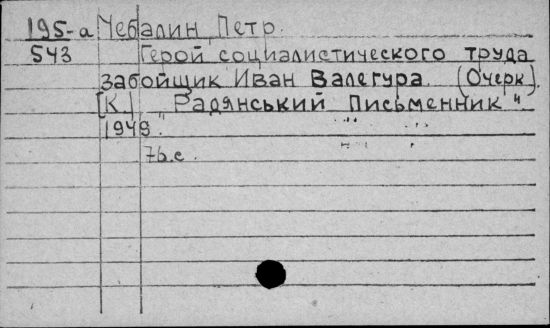 195-а Чебалин Петр.
543 Герой социалистического труда
забойщик Иван Валегура. (Очерк).
[К] "Радянський Письменник"
1949.
76.с.